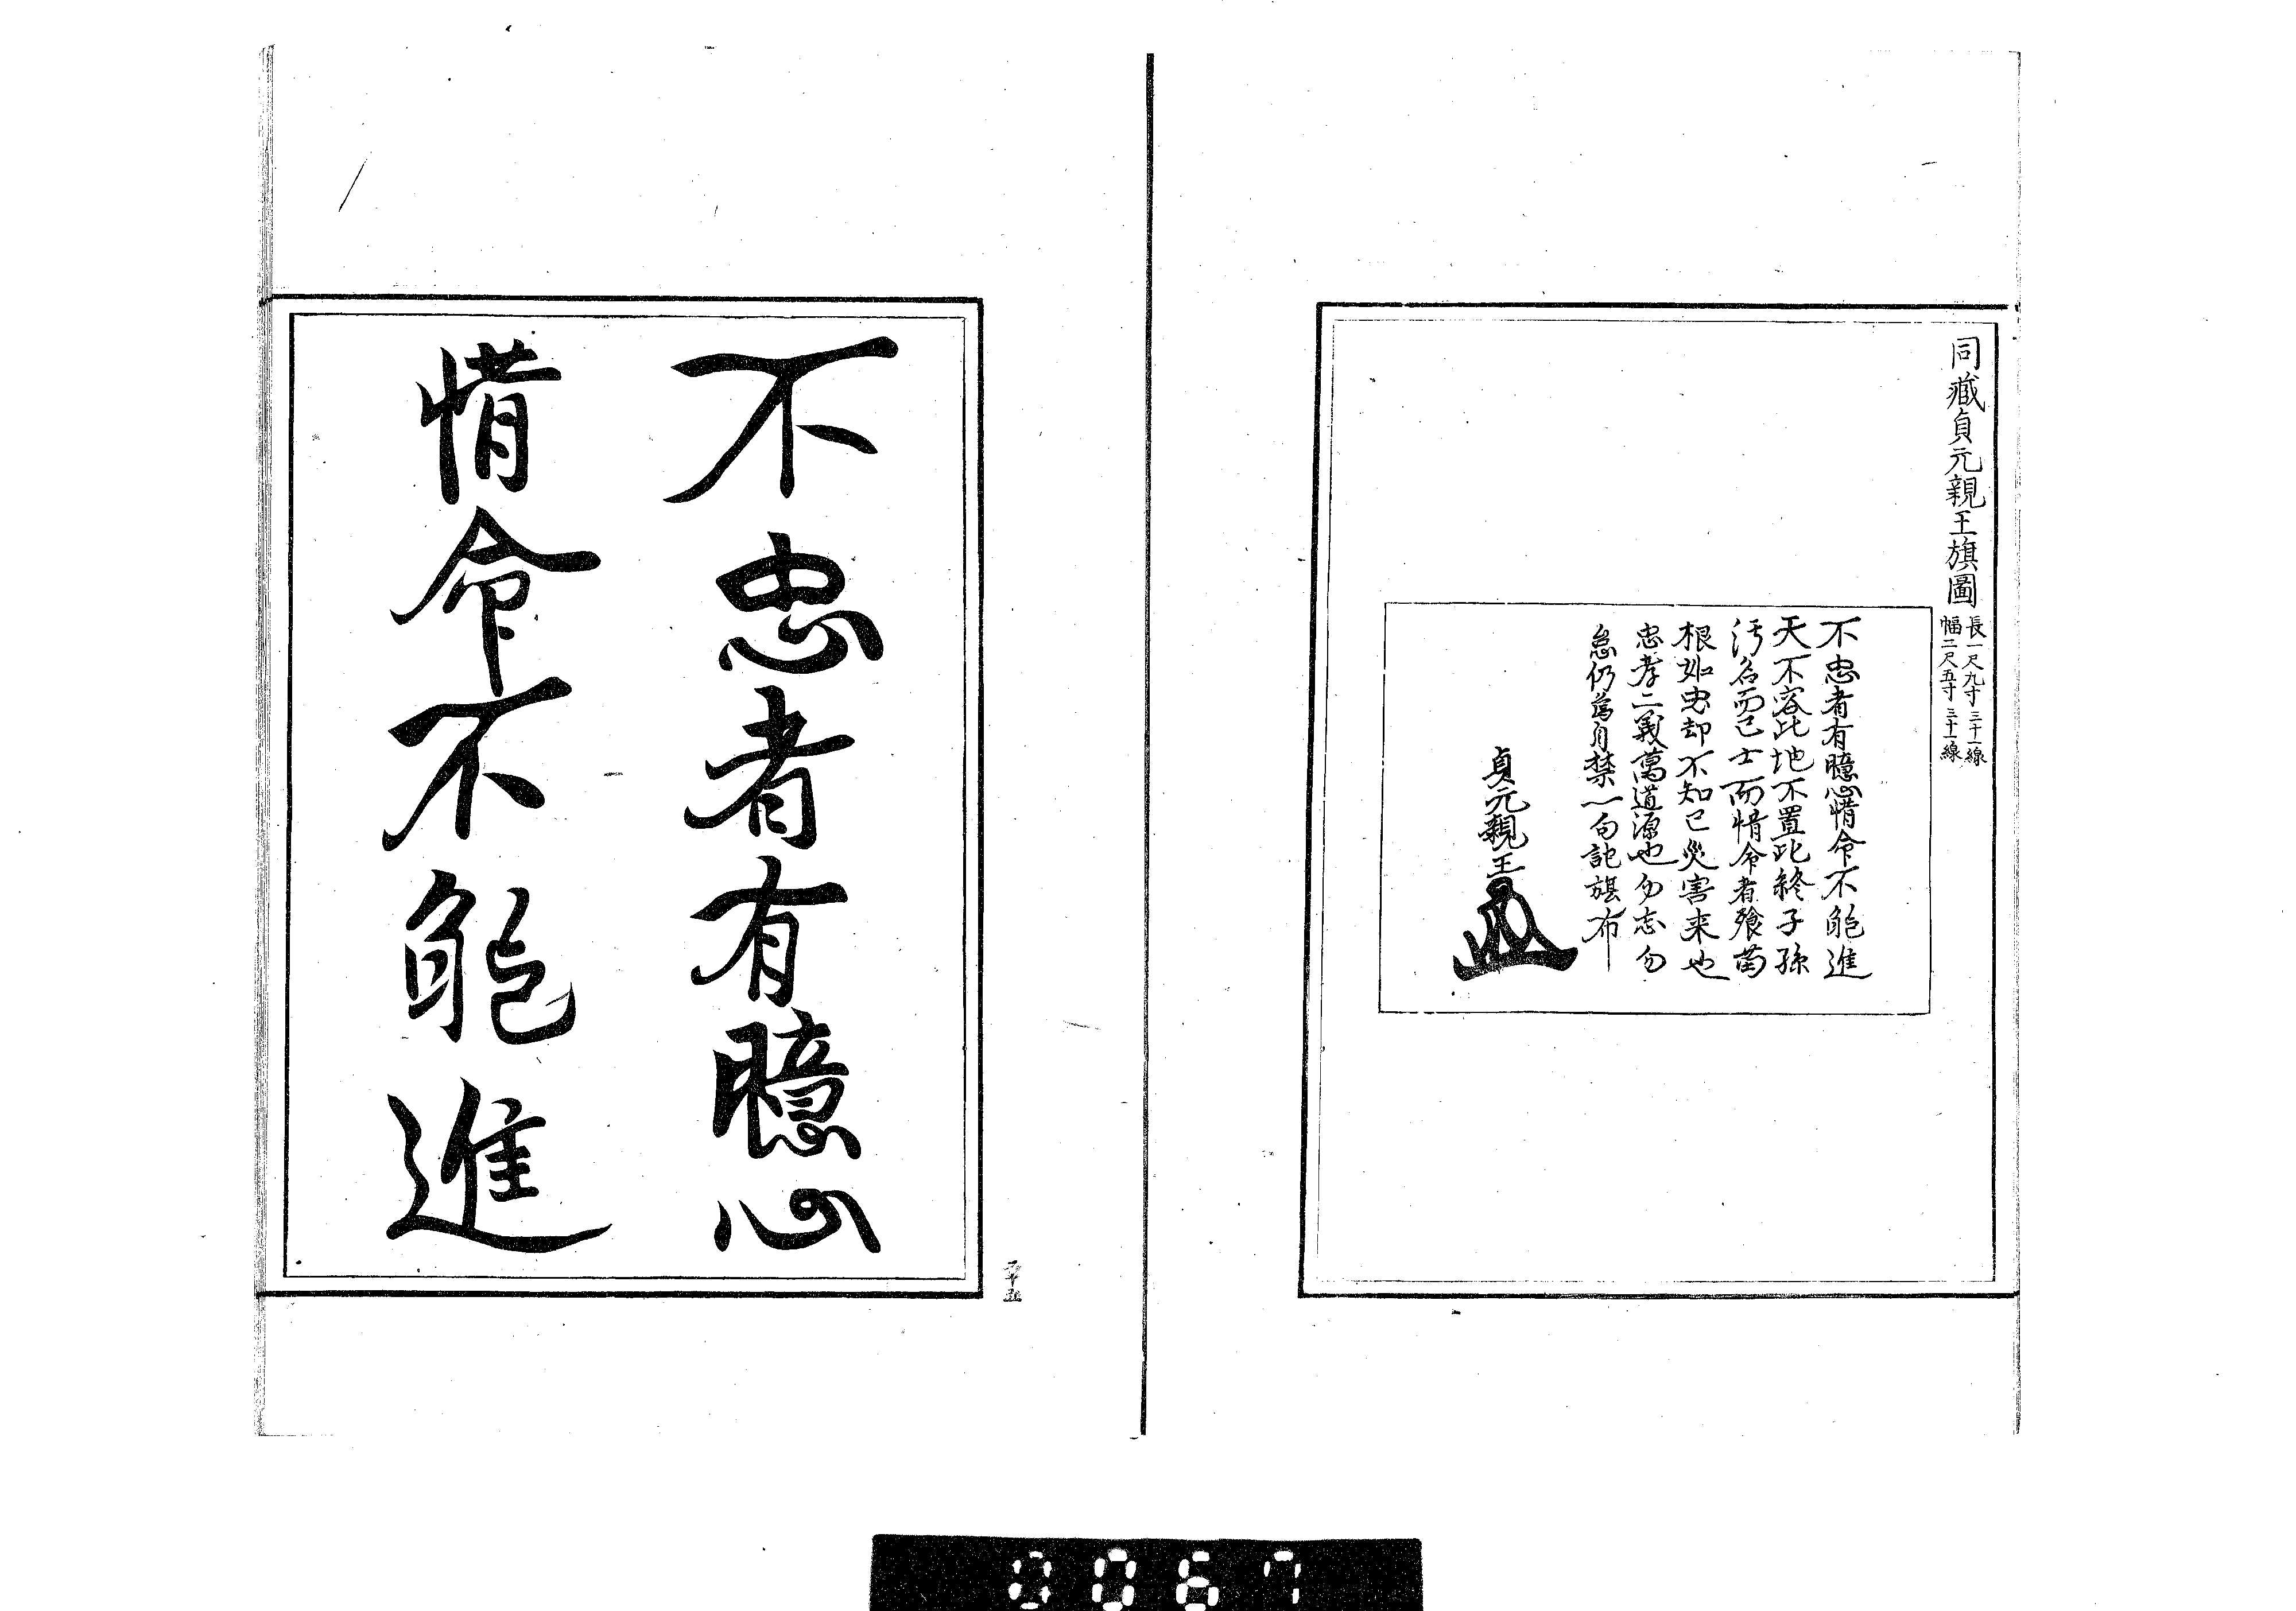 同藏貞元親王旗圖
長一尺九寸三十一線
幅二尺五寸三十一線
不忠者有臆心惜命不能進
天不容此地不置此終子孫
汚名而已士而惜命者殘苗
根如忠却不知己災害来也
忠孝二義萬道源也勿忘勿
怠仍為自禁一句記旗布
貞元親王
不忠者有臆心
惜命不能進
五十五
0067